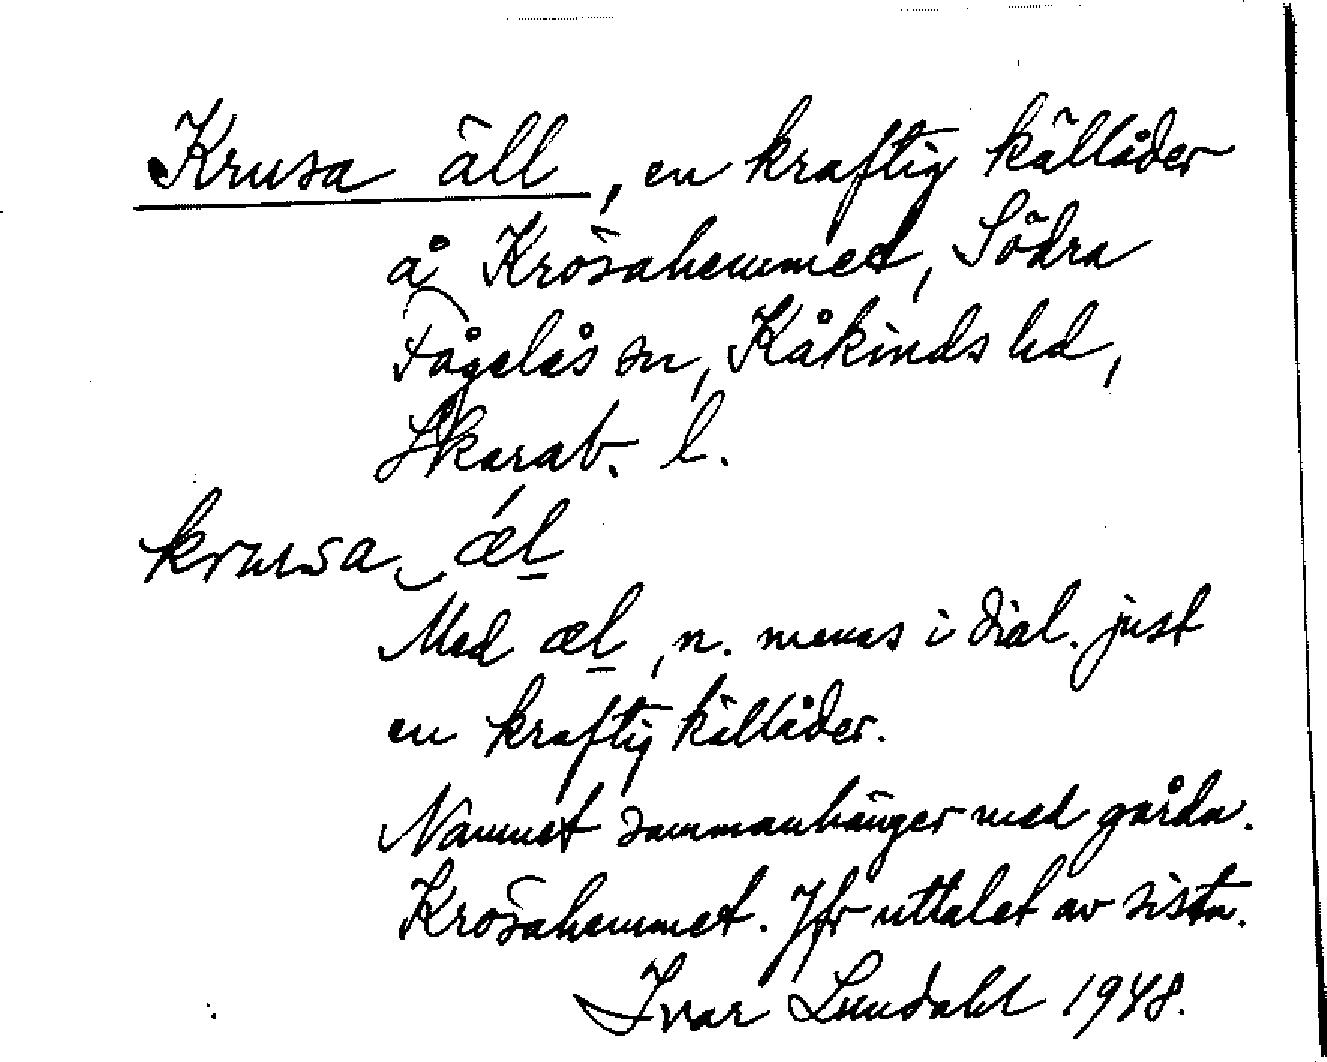 Krusa äll, en kraftig källåder
å Krösahemmet, Södra
Fågelås sn, Kåkinds hd,
Skarab. l.
krusa‿ ǽl
Med æl, n. menas i dial. just
en kraftig källåder.
Namnet sammanhänger med gårdn.
Krösahemmet. Jfr uttalet av sistn.
Ivar Lundahl 1948.